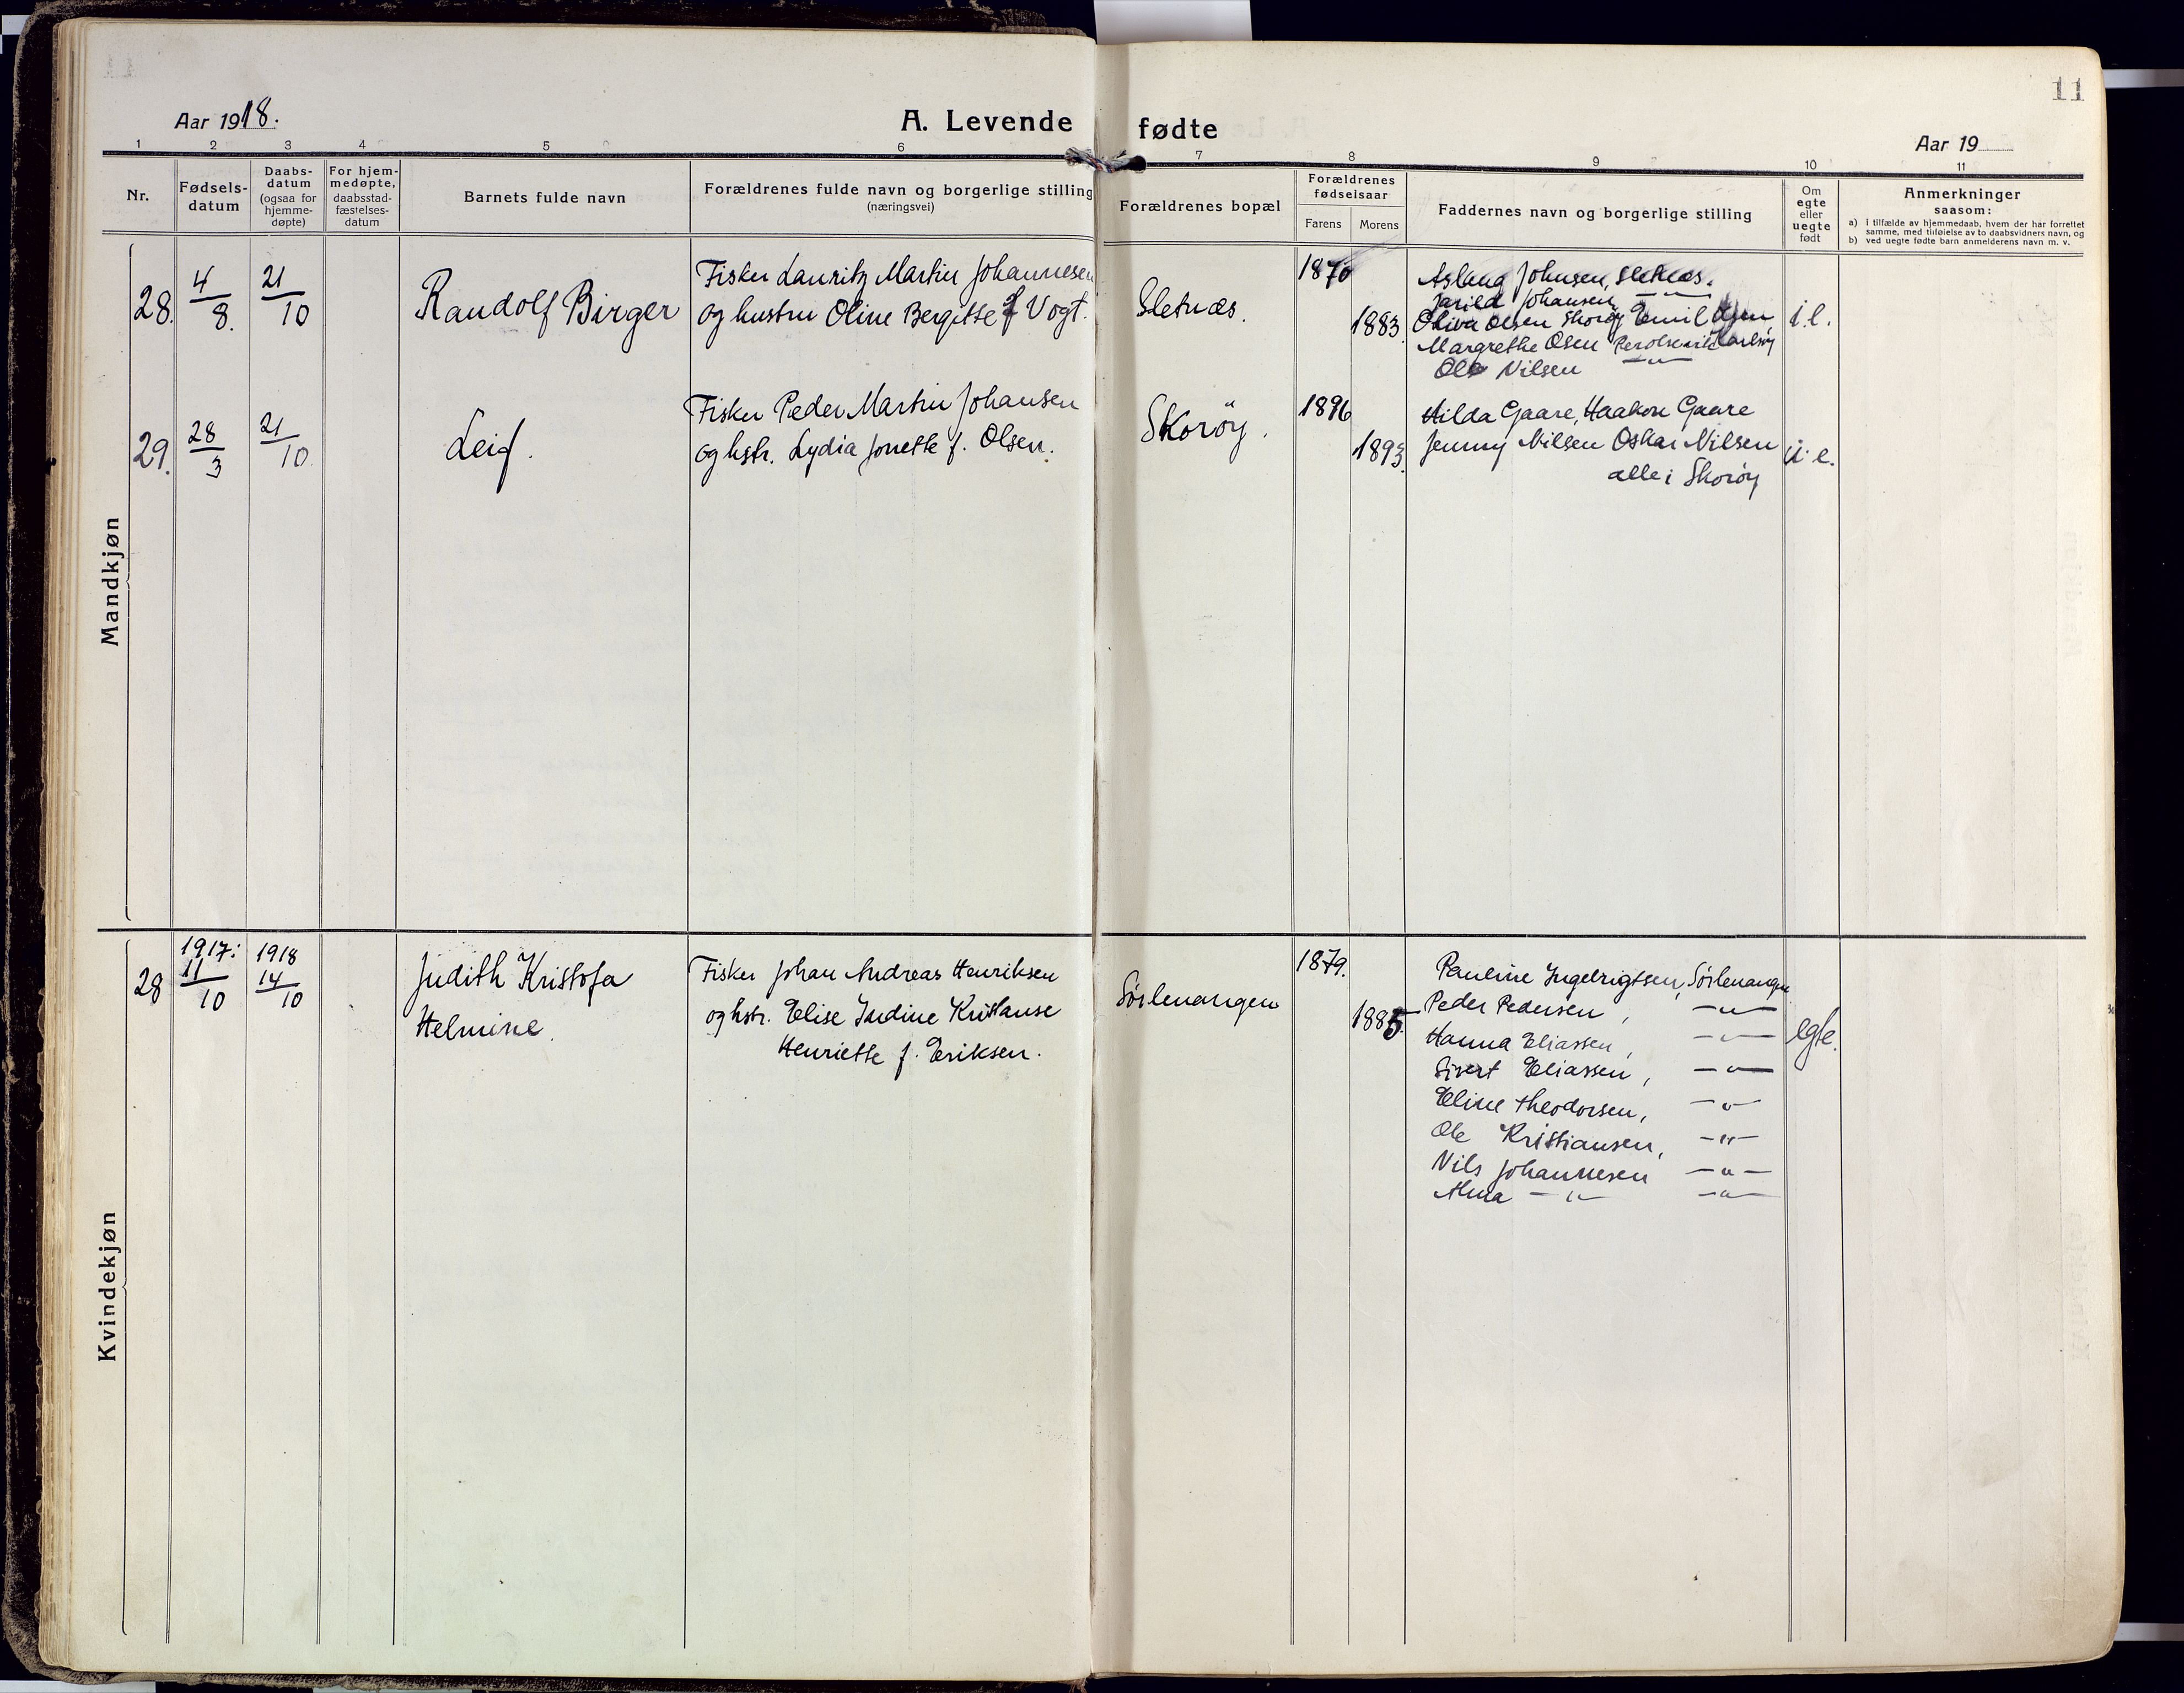 11
Aar 1918.
A. Levende fødte
Aar 19
1 2 3 4 5 6 7 8 9 10 11
Nr.
Fødsels-
datum
Daabs-
datum
(ogsaa for
hjemme-
døpte)
For hjem-
medøpte,
daabsstad-
fæstelses-
datum
Barnets fulde navn
Forældrenes fulde navn og borgerlige stilling
(næringsvei)
Forældrenes bopæl
Forældrenes
fødselsaar
Farens Morens
Faddernes navn og borgerlige stilling
Om
egte
eller
uegte
født
Anmerkninger
saasom:
a) i tilfælde av hjemmedaab, hvem der har forrettet
samme, med tilføielse av to daabsvidners navn, og
b) ved uegte fødte barn anmelderens navn m. v.
Mandkjøn
28. 4/8. 21/10
Randolf Birger
Fisker Lauritz Martin Johannesen
og hustru Oline Bergitte f Vogt.
Sletnæs.
1870
1883.
Aslaug Johnsen, Sletnæs.
Jarild Johansen — " —
Oliva Olsen Skorøy Emil
Margrethe Olsen
Ole Nilsen — " —
29. 28/3 21/10.
Leif.
Fisker Peder Martin Johansen
og hstr. Lydia Jonette f. Olsen.
Skorøy.
1896
1893.
Hilda Gaare, Haakon Gaare
Jenny Nilsen Oskar Nilsen
alle i Skorøy
Kvindekjøn
28 1917: 11/10 1918 14/10
Judith Kristofa
Helmine.
Fisker Johan Andreas Henriksen
og hstr. Elise Indine Kristianse
Henriette f. Eriksen.
Sørlenangen
1879.
1885.
egte.
Pauline Ingebrigtsen, Sørlenangen
Peder Pedersen, — " —
Hanna Eliassen, — " —
Sivert Eliassen, — " —
Eline Theodorsen, — " —
Ole Kristiansen, — " —
Nils Johannesen — " —
Alma — " — — " —